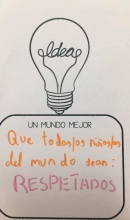 Idea
UN MUNDO MEJOR
Que todos/os niños/as
del mundo sean:
RESPETADOS